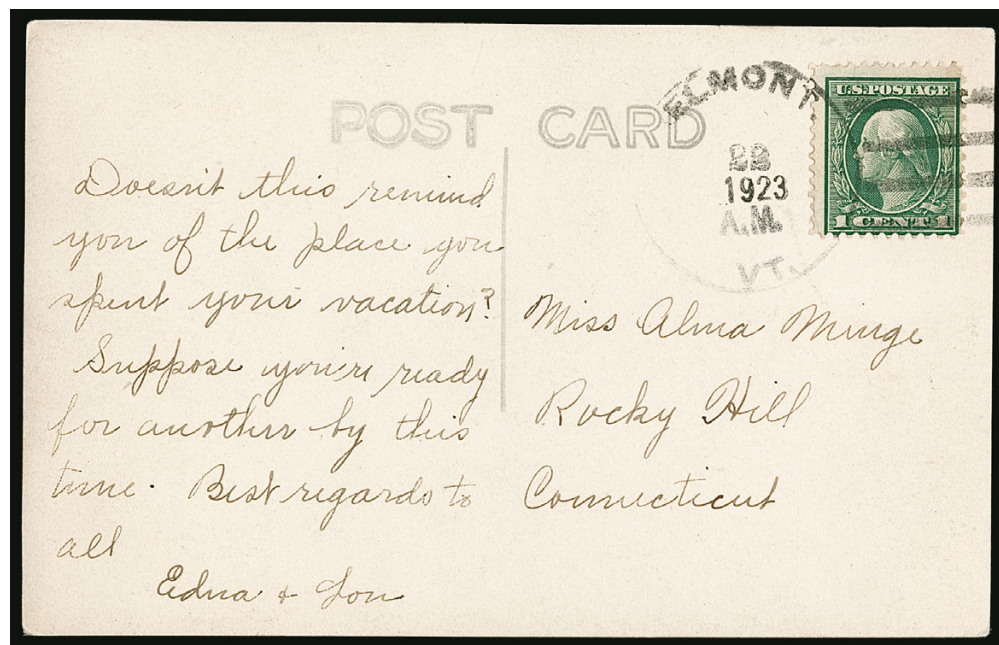 POST CARD
ELMONT
22
1923
A.M.
VT.
U.S. POSTAGE
1 CENTS 1
Doesn't this remind
you of the place you
spent your vacation?
Suppose you're ready
for another by this
time. Best regards to
all
Edna + Lon
Miss Alma Minge
Rocky Hill
Connecticut